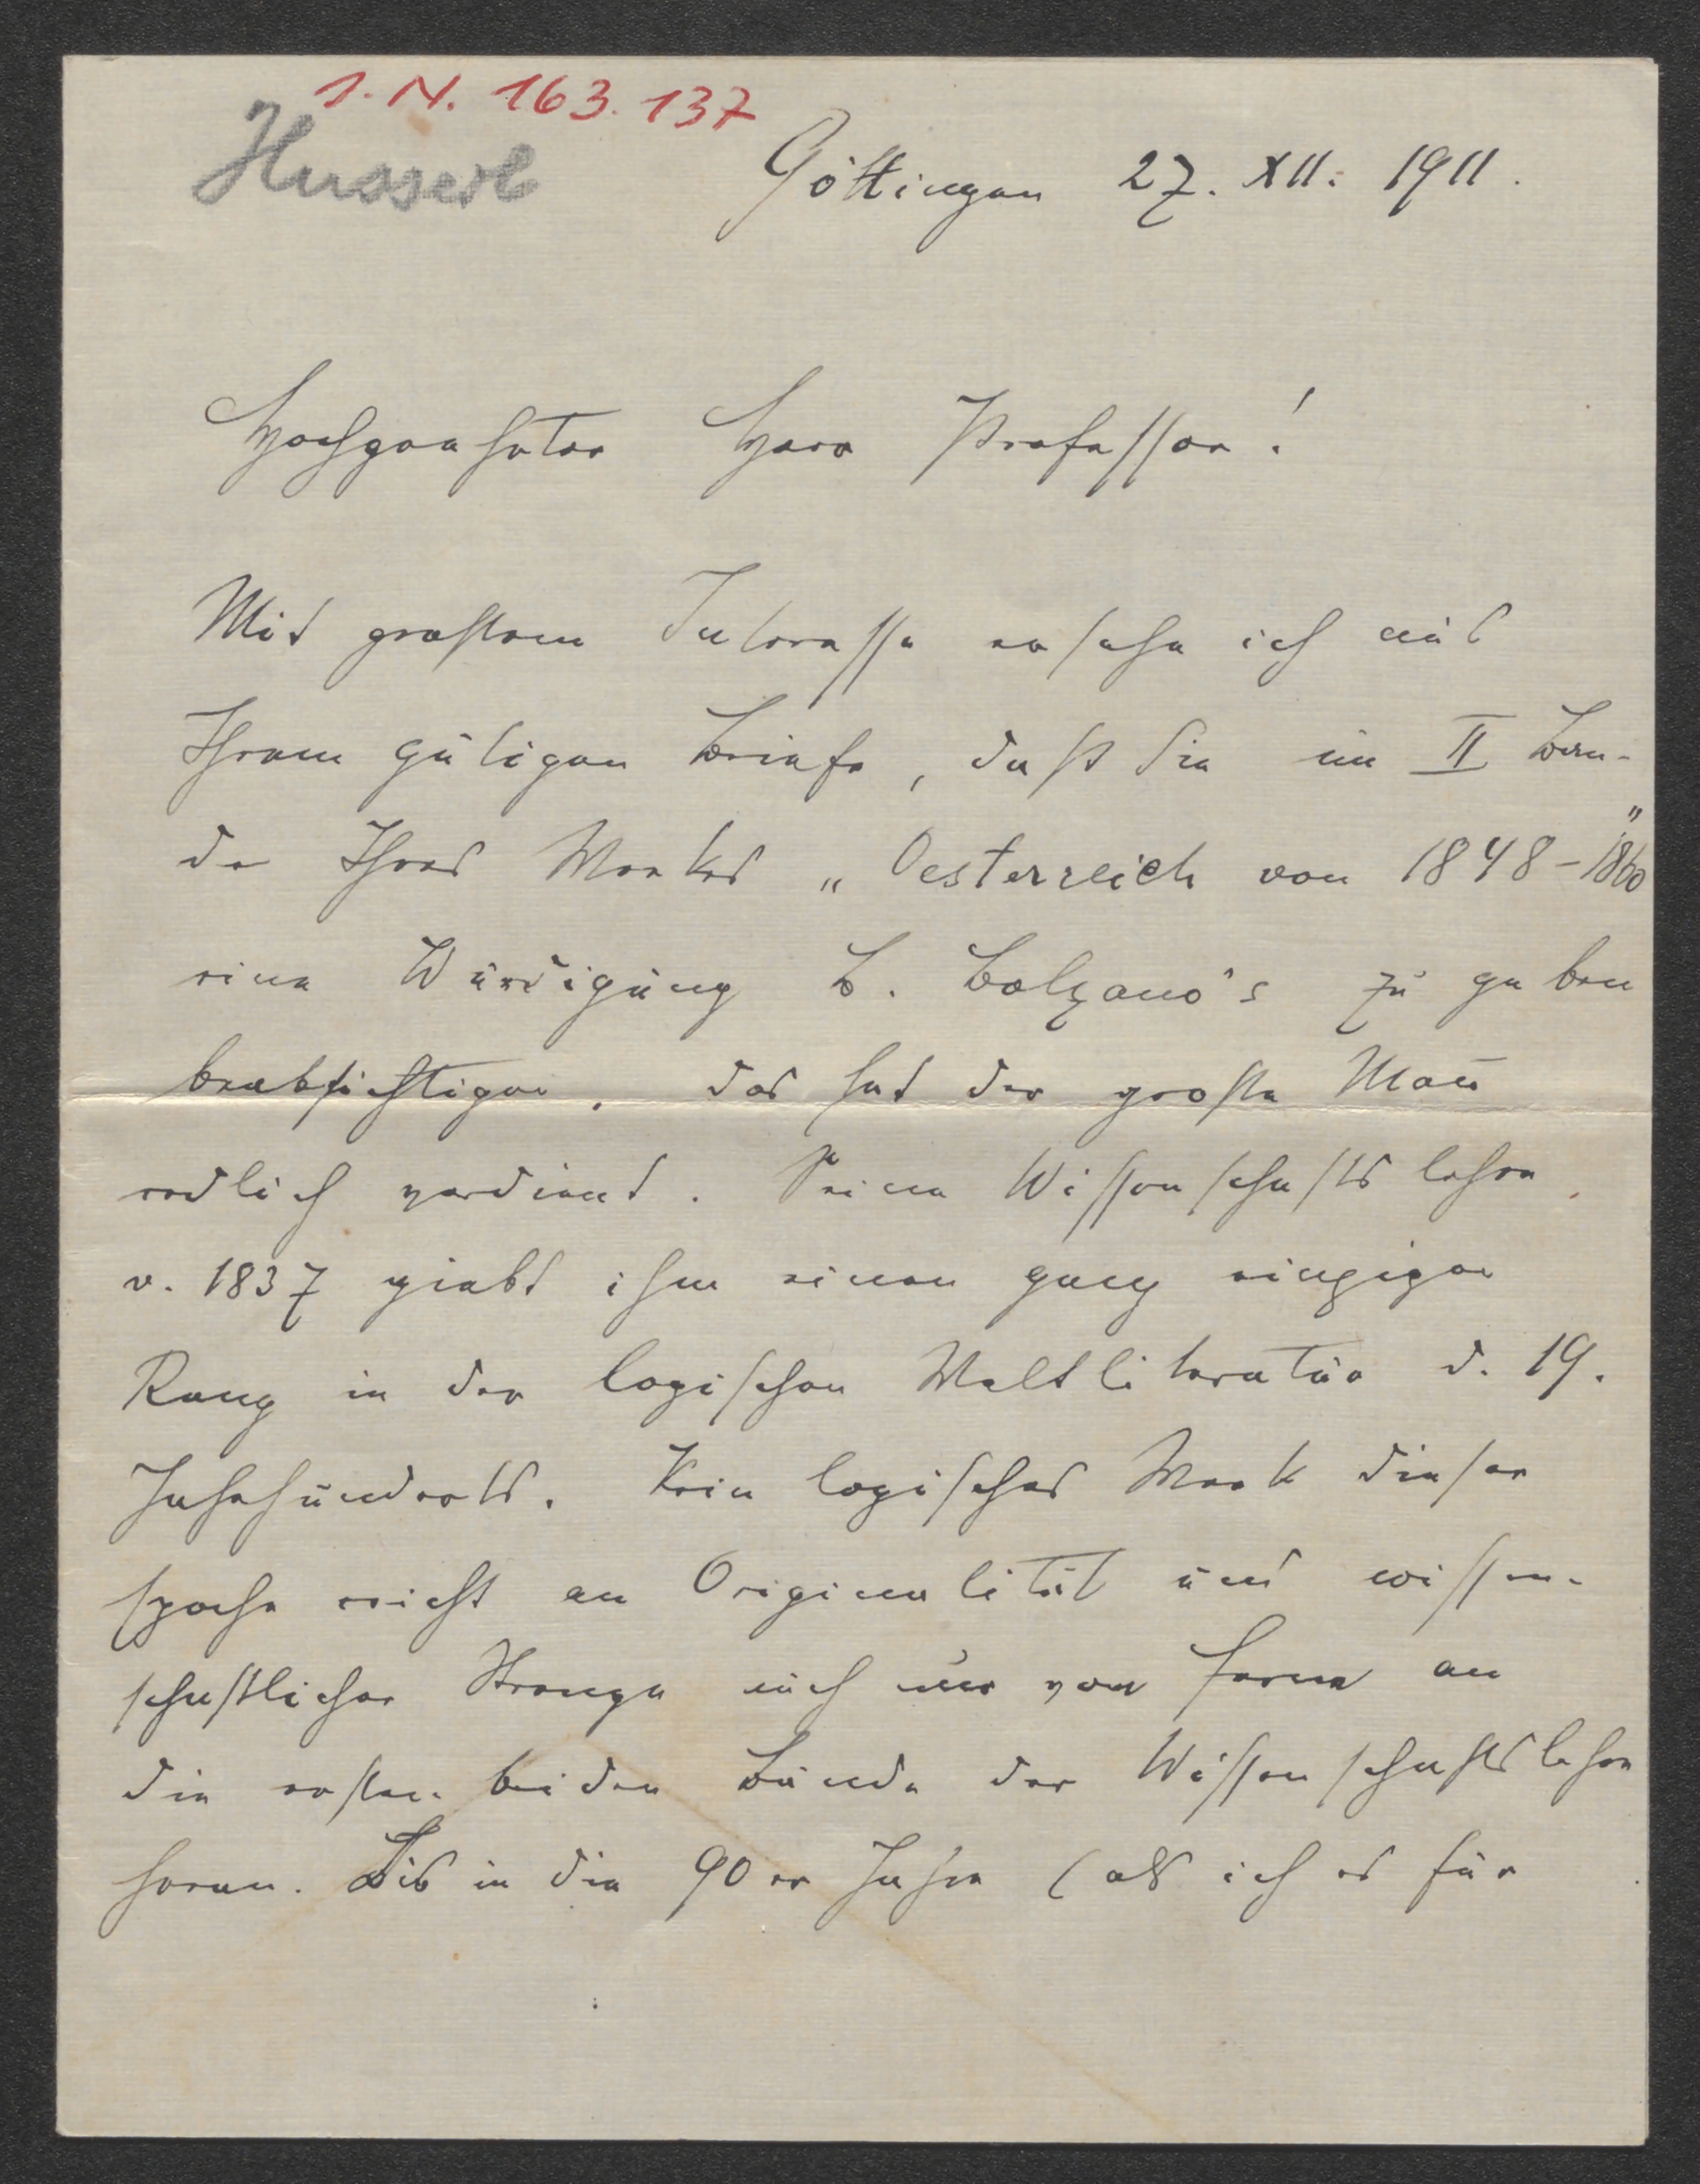 I. N. 163.137
Husserl
Göttingen 27. XII. 1911.
Hochgeehrter Herr Professor!
Mit grostem Interesse ersehe ich aus
Ihrem gütigen Briefe, daß Sie im II Ban-
de Ihres Werkes „Oesterreich von 1848-1860"
eine Würdigung B. Bolzano's zu geben
beabsichtigen. Das hat der große Mañ
redlich verdient. Seine Wissenschaftslehre
v. 1837 giebt ihm einen ganz einzigen
Rang in der logischen Weltliteratur d. 19.
Jahrhunderts. Kein logisches Werk dieser
Epoche reicht an Originalität und wissen-
schaftlicher Strenge auch nur von ferne an
die ersten beiden Bände der Wissenschaftslehre
heran. Bis in die 90er Jahre (als ich es für